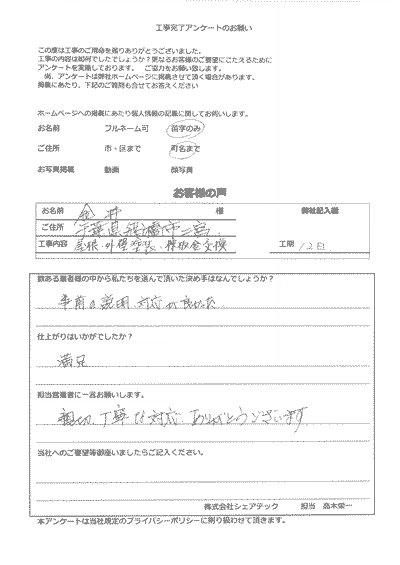 工事完了アンケートのお願い
この度は工事のご用命を賜りありがとうございました。
工事の内容は如何でしたでしょうか？更なるお客様のご要望にこたえるために
アンケートを実施しております。 ご協力をお願い致します。
尚、アンケートは弊社ホームページに掲載させて頂く場合があります。
掲載にあたり、下記のご質問も合せてお答えください
ホームページへの掲載にあたり個人情報の記載に関してお伺いします。
お名前 フルネーム可 苗字のみ
ご住所 市・区まで 町名まで
お写真掲載 動画 顔写真
お客様の声
お名前 金井 様 弊社記入欄
ご住所 千葉県船橋市三宮
工事内容 屋根・外壁塗装、棟板金交換 工期 12日
数ある業者様の中から私たちを選んで頂いた決め手はなんでしょうか？
事前の説明、対応が良かった
仕上がりはいかがでしたか？
満足
担当営業者に一言お願いします。
親切、丁寧な対応、ありがとうございます。
当社へのご要望等御座いましたらご記入ください。
株式会社シェアテック 担当 高木栄一
本アンケートは当社規定のプライバシーポリシーに則り扱わせて頂きます。